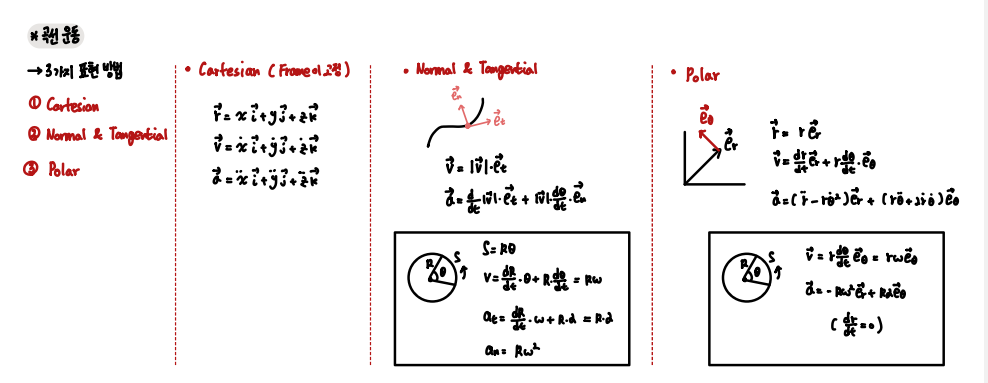 * 곡선 운동
→ 3가지 표현 방법
① Cartesian
② Normal & Tangential
③ Polar
• Cartesian (Frame이 고정)
r⃗ = x i⃗ + y j⃗ + z k⃗
v⃗ = ẋ i⃗ + ẏ j⃗ + ż k⃗
a⃗ = ẍ i⃗ + ÿ j⃗ + z̈ k⃗
• Normal & Tangential
e⃗n
e⃗t
v⃗ = |v⃗|·e⃗t
a⃗ = d/dt |v⃗|·e⃗t + |v⃗|·dθ/dt·e⃗n
R θ S
S = Rθ
v = dR/dt·θ + R·dθ/dt = Rω
at = dR/dt·ω + R·α = R·α
an = Rω²
• Polar
e⃗θ
e⃗r
r⃗ = r e⃗r
v⃗ = dr/dt e⃗r + r dθ/dt·e⃗θ
a⃗ = (r̈ - rθ̇²)e⃗r + (rθ̈ + 2ṙθ̇)e⃗θ
R θ S
v⃗ = r dθ/dt e⃗θ = rω e⃗θ
a⃗ = -Rω² e⃗r + Rα e⃗θ
(dr/dt = 0)